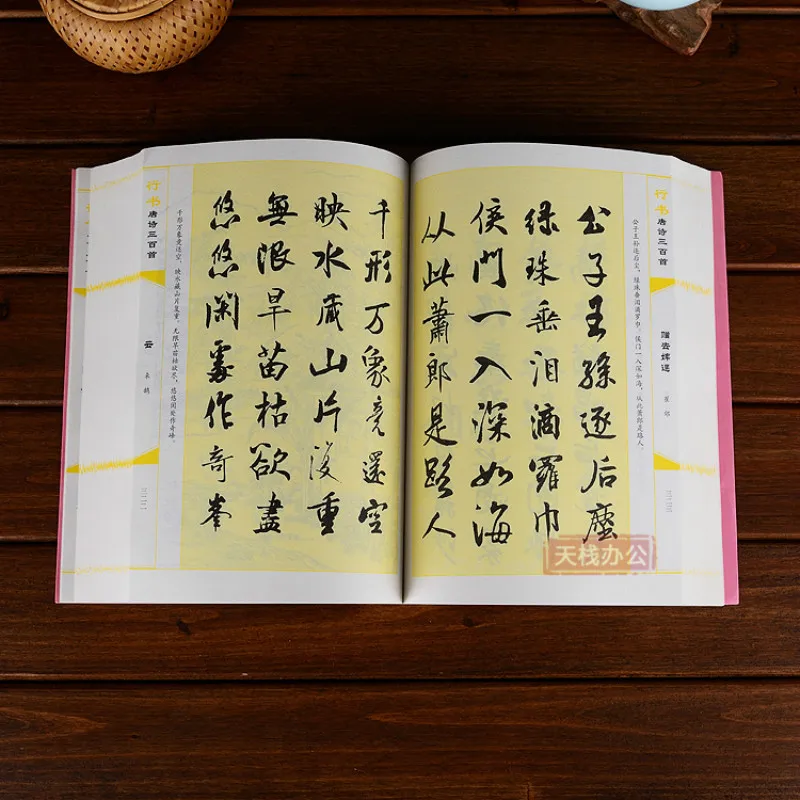 行书唐诗三百首
崔郊
公子王孙逐后尘,绿珠垂泪滴罗巾。侯门一入深如海,从此萧郎是路人。
公子王孫逐后塵
绿珠垂泪滴羅巾
侯門一入深如海
从此蕭郎是路人
千形万象竟還空
映水藏山片復重
無限旱苗枯欲盡
悠悠閑處作奇峯
千形万象竟还空,映水藏山片复重。无限旱苗枯欲尽,悠悠闲处作奇峰。
行书唐诗三百首
云
来鹄
天栈办公